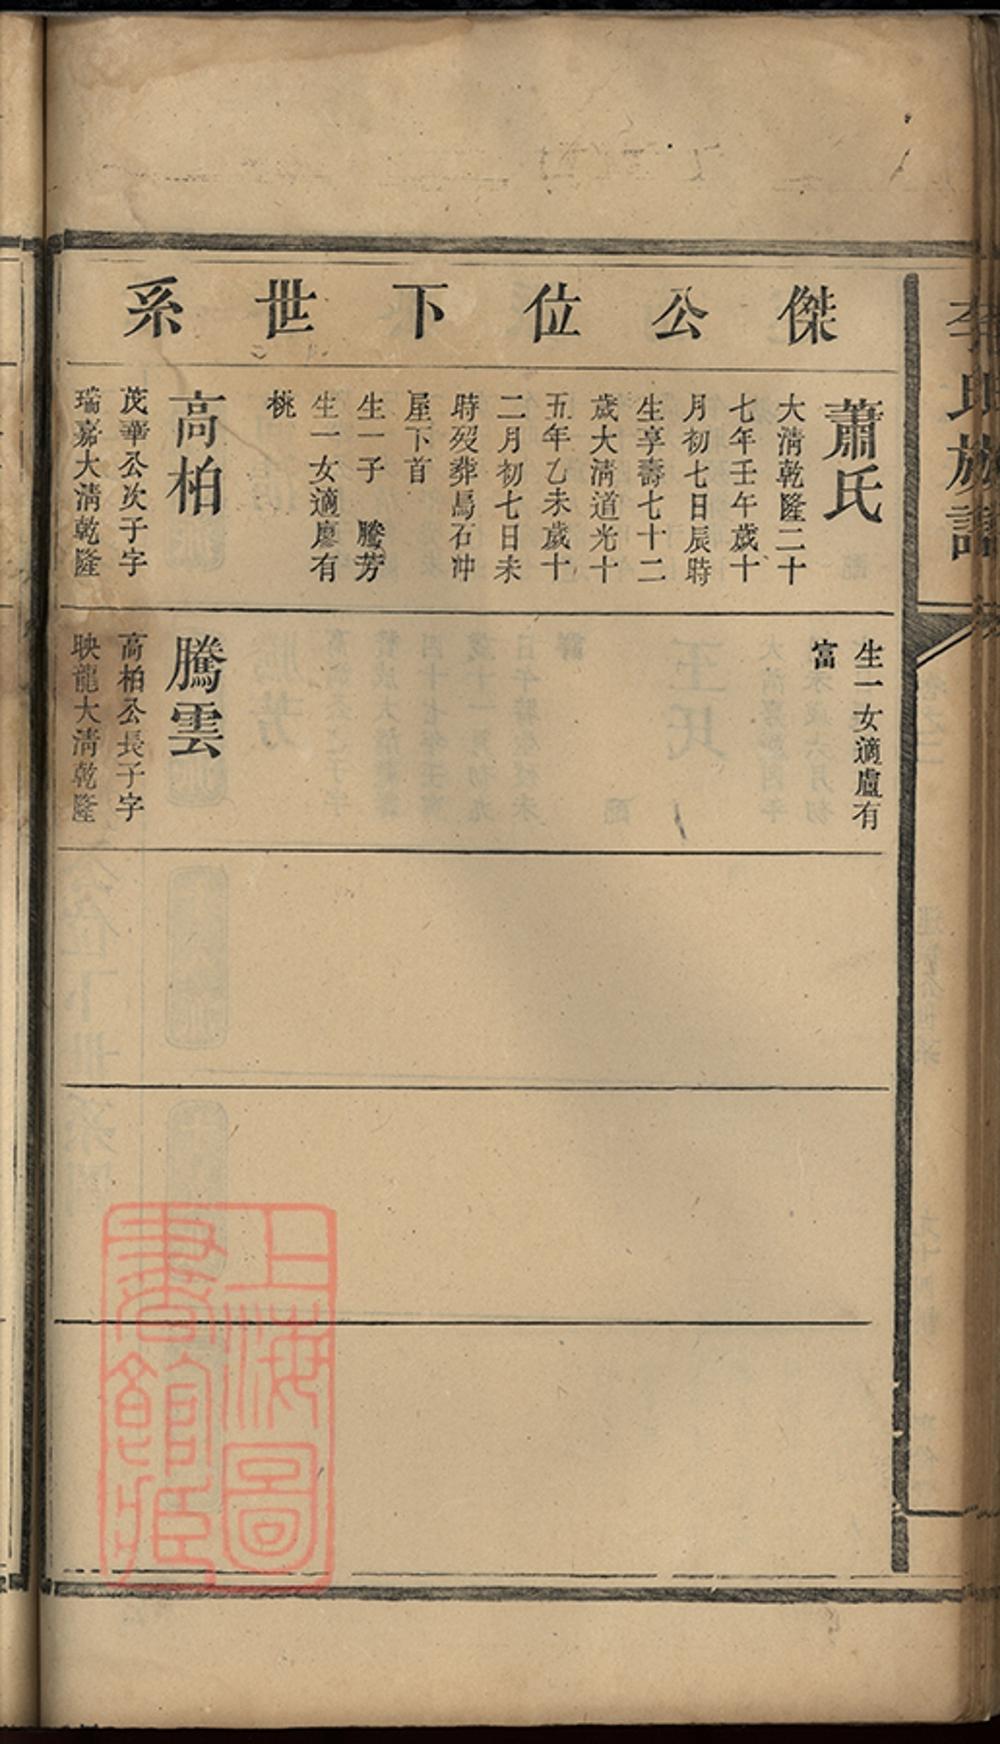 李氏族譜
傑公位下世系
蕭氏
大淸乾隆二十
七年壬午歲十
月初七日辰時
生享壽七十二
歲大淸道光十
五年乙未歲十
二月初七日未
時歿葬馬石冲
屋下首
生一子　騰芳
生一女適廖有
桃
高柏
茂華公次子字
瑞嘉大淸乾隆
生一女適盧有
富
騰雲
高柏公長子字
映龍大淸乾隆
上海圖
書館藏